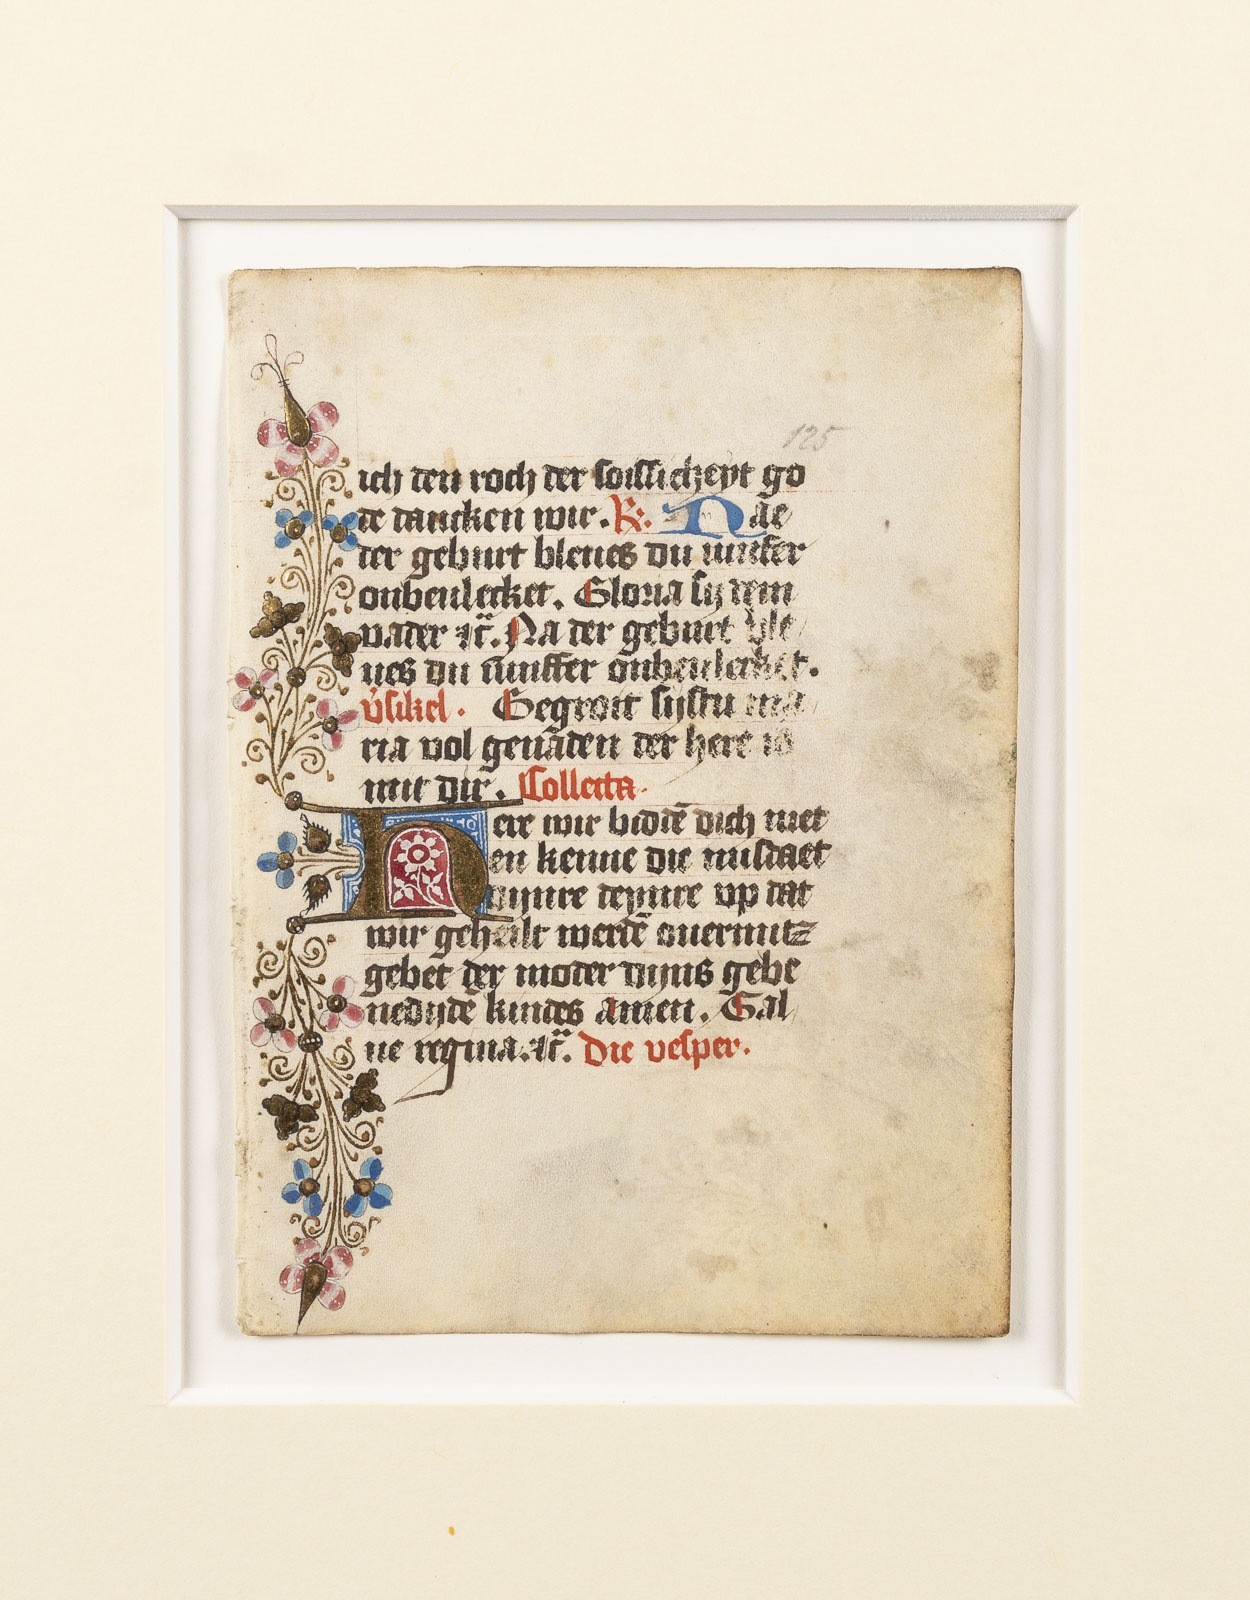 125
ich den roch der soissicheyt go
de dancken wir. R. Nae
der geburt bleues du iunfer
onbeulecket. Gloria sy dem
vader ⁊c̃. Na der geburt ble
ues du iunffer onbeulecket.
v̓sikel. Gegroit systu ma
ria vol genãden der here is
mit dir. Collecta.
Here wir biddẽ dich niet
en kenne die misdaet
dynre deynre vp dat
wir geheilt werdẽ ouermitz
gebet der moder dyns gebe
nedydẽ kindes amen. Sal
ue regina. ⁊c̃. Die vesper.